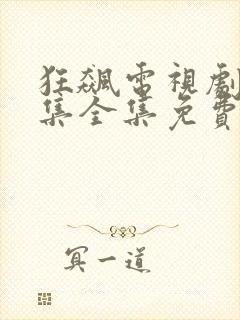 狂飆電視劇
集全集免費
冥一道